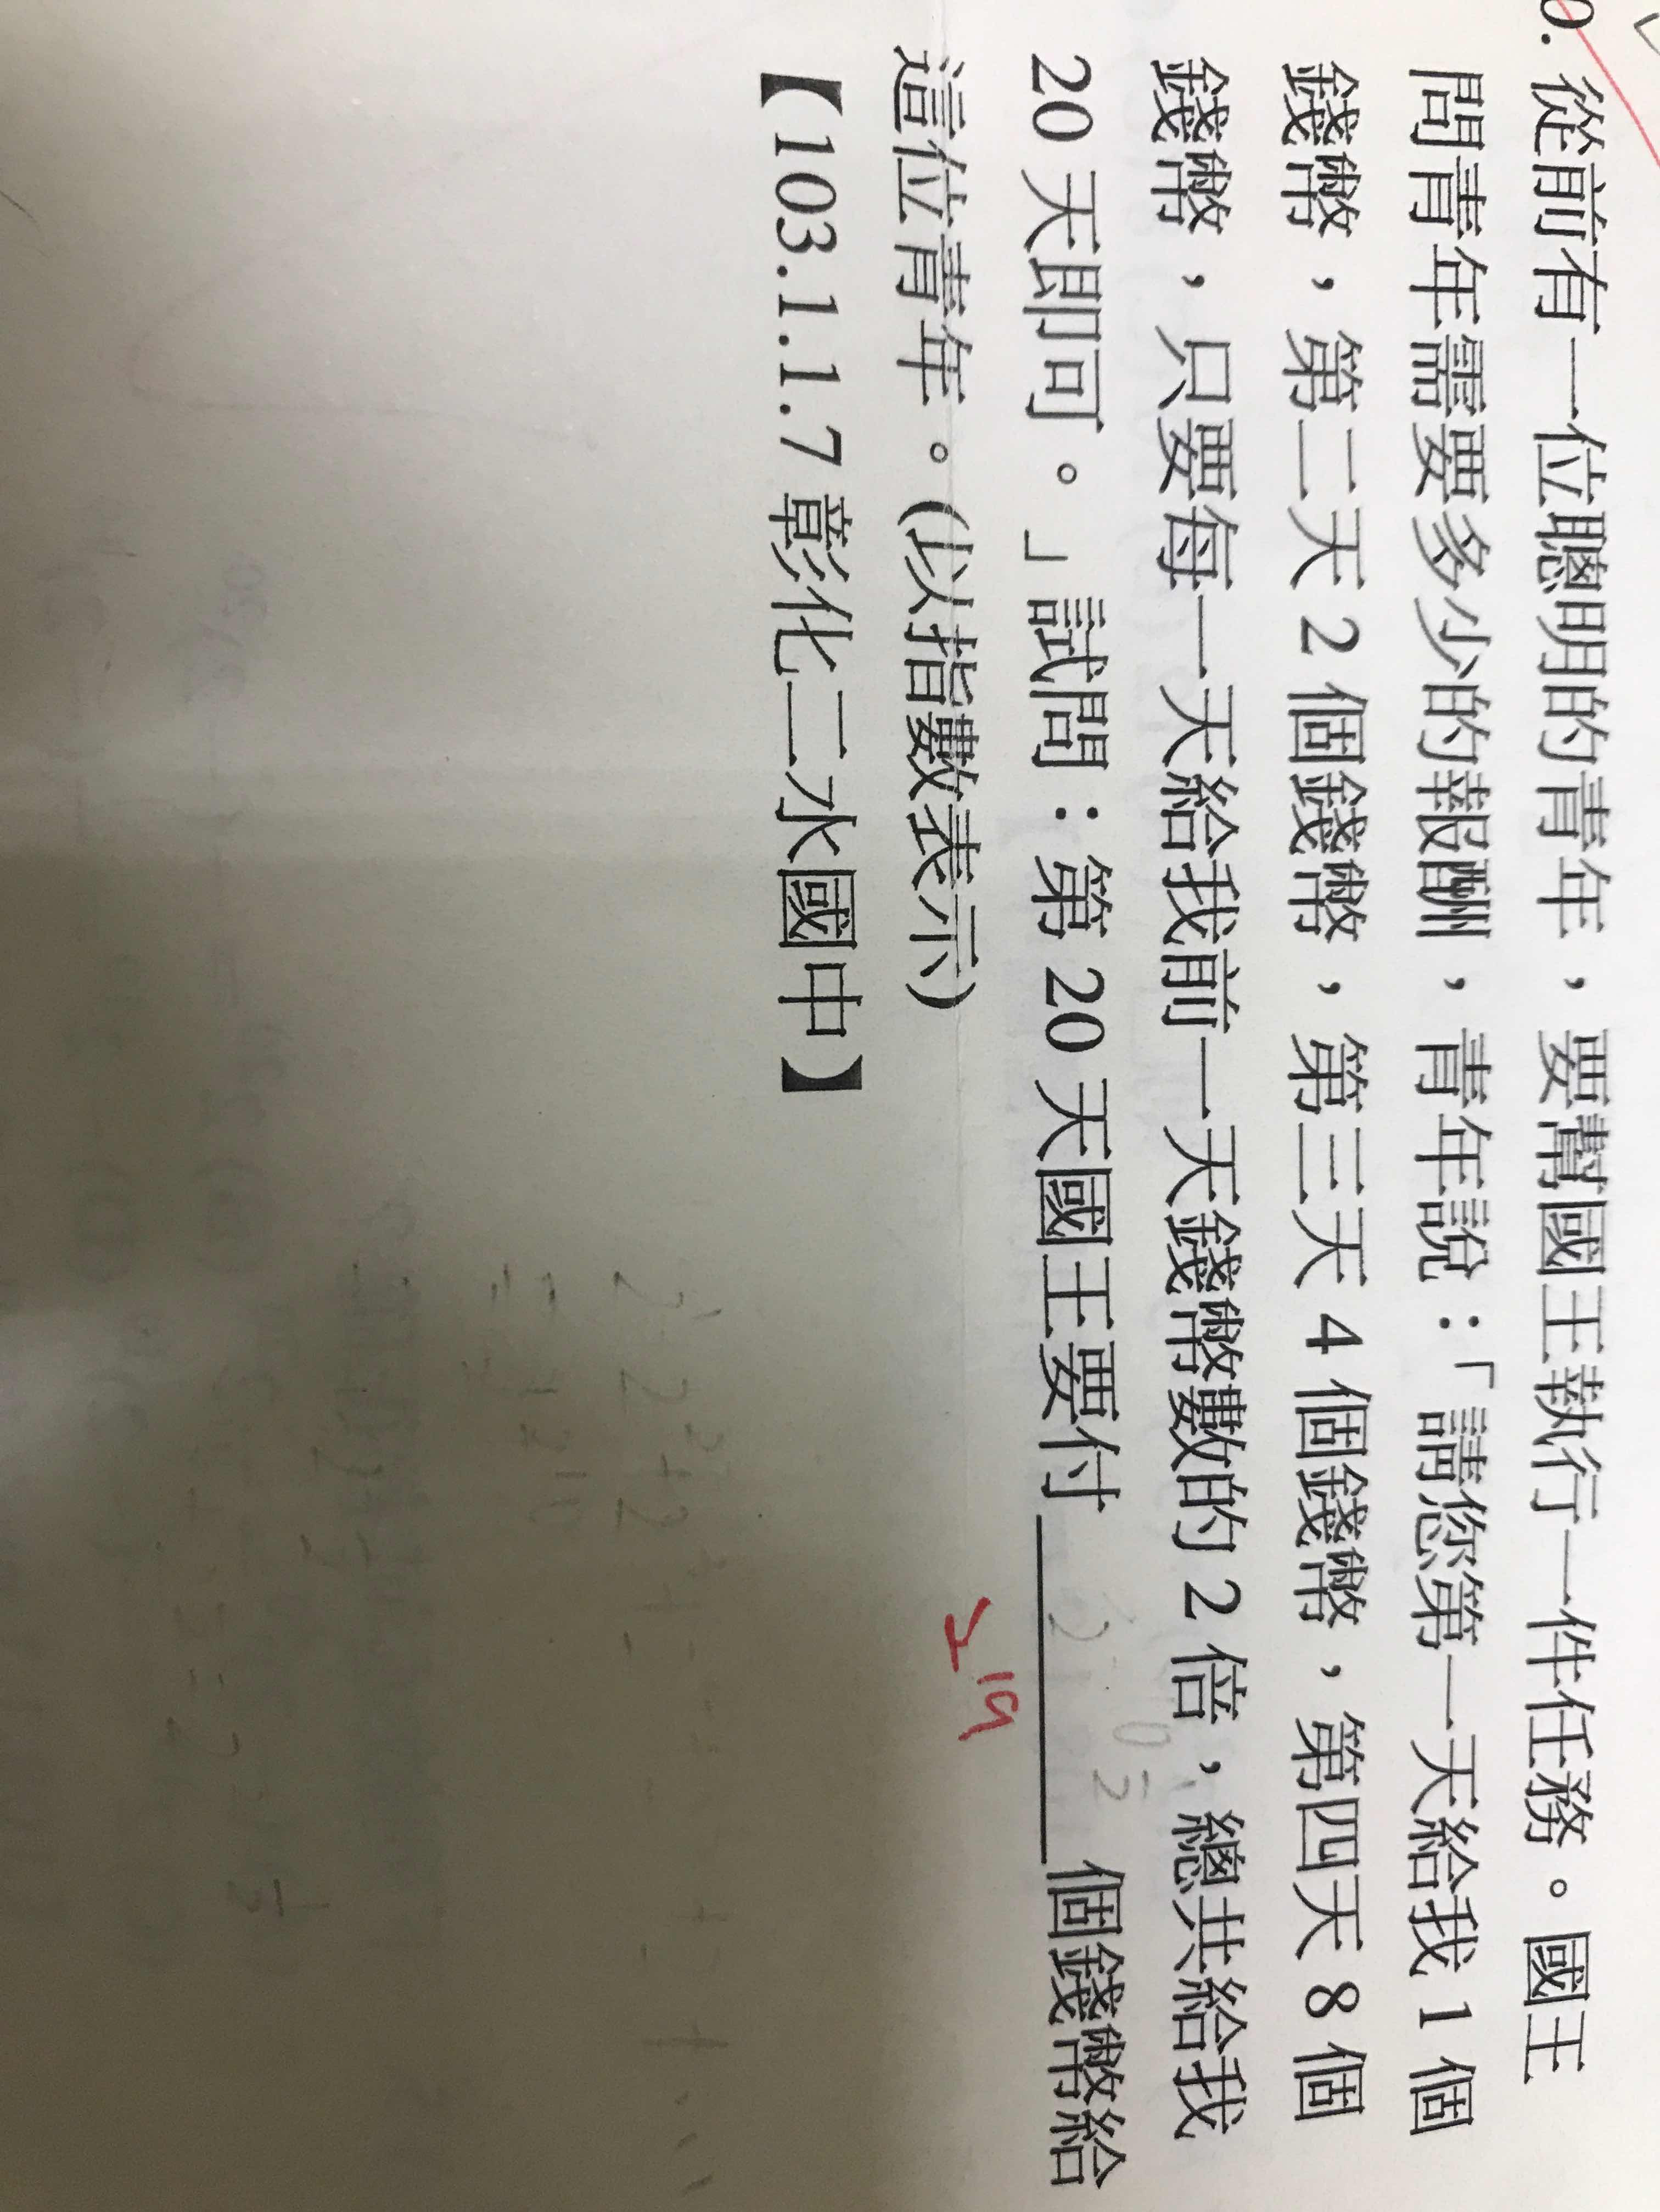 0. 從前有一位聰明的青年，要幫國王執行一件任務。國王
問青年需要多少的報酬，青年說：「請您第一天給我 1 個
錢幣，第二天 2 個錢幣，第三天 4 個錢幣，第四天 8 個
錢幣，只要每一天給我前一天錢幣數的 2 倍，總共給我
20 天即可。」試問：第 20 天國王要付________個錢幣給
2^19
這位青年。(以指數表示)
【103.1.1.7 彰化二水國中】